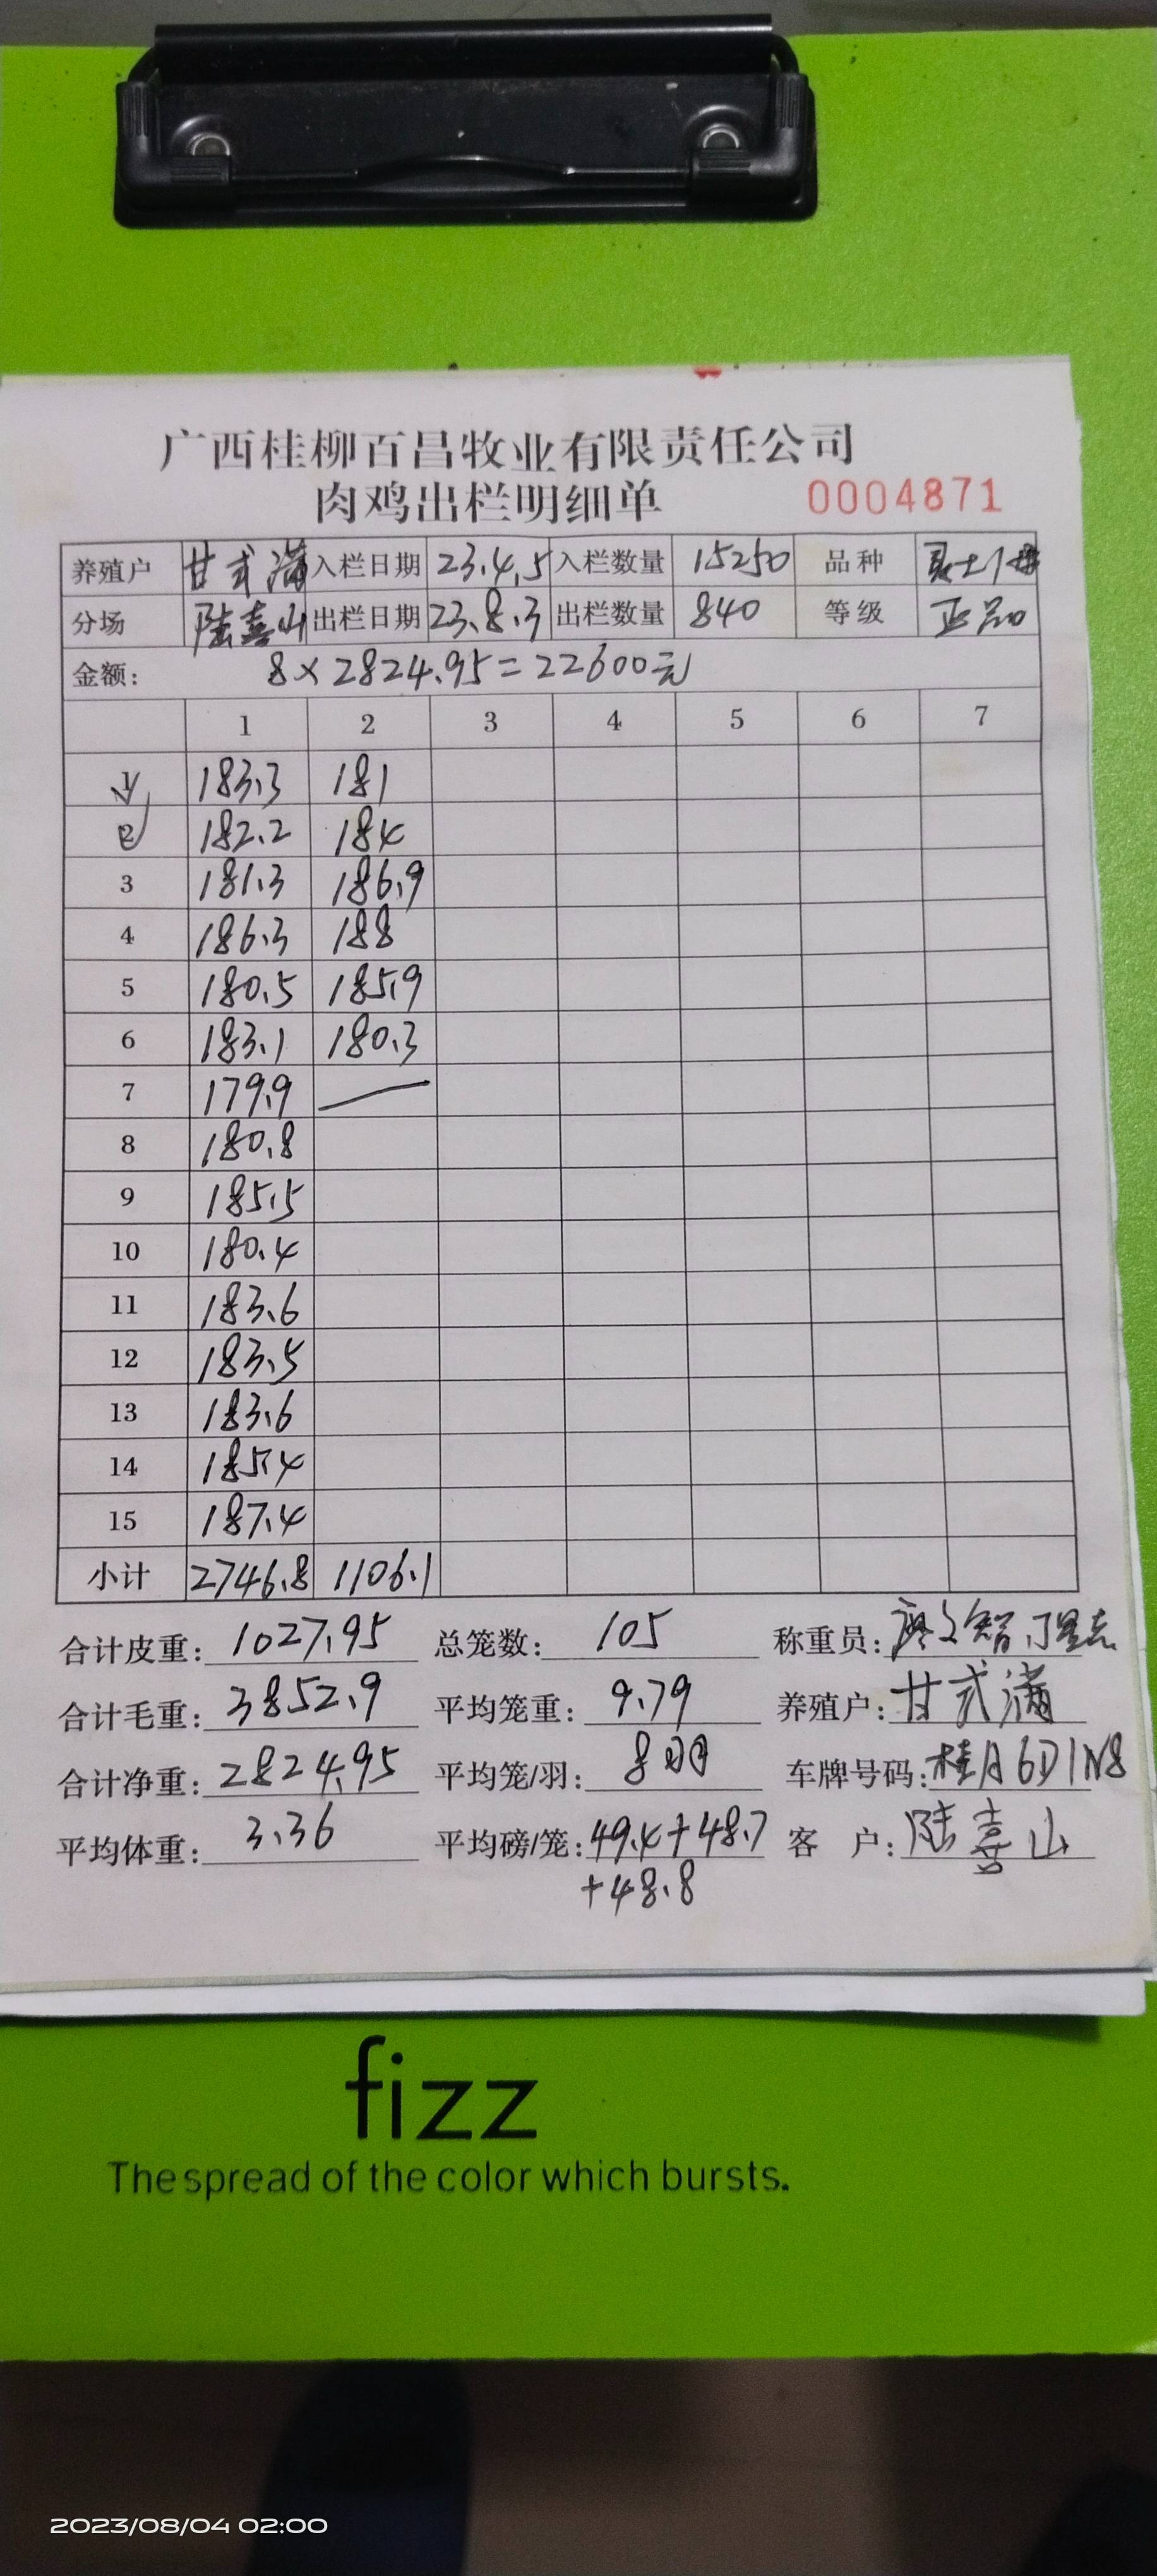 广西桂柳百昌牧业有限责任公司
肉鸡出栏明细单 0004871
养殖户 甘式满 入栏日期 23.4.5 入栏数量 15250 品种
分场 陆喜山 出栏日期 23.8.3 出栏数量 840 等级 正品
金额: 8×2824.95=22600元
1 2 3 4 5 6 7
1 183.3 181
2 182.2 184
3 181.3 186.9
4 186.3 188
5 180.5 185.9
6 183.1 180.3
7 179.9 —
8 180.8
9 185.5
10 180.4
11 183.6
12 183.5
13 183.6
14 185.4
15 187.4
小计 2746.8 1106.1
合计皮重: 1027.95 总笼数: 105 称重员: 廖文智
合计毛重: 3852.9 平均笼重: 9.79 养殖户: 甘式满
合计净重: 2824.95 平均笼/羽: 8羽 车牌号码: 桂A6D1N8
平均体重: 3.36 平均磅/笼: 49.4+48.7 客户: 陆喜山
+48.8
fizz
The spread of the color which bursts.
2023/08/04 02:00